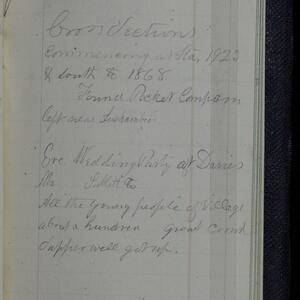 Cross Sections
Commencing at Sta. 1923
& South to 1868
Found Pocket Compass
left near
Eve Wedding Party at Davies
Mr
All the young people of Village
about a hundred Great Crowd
Supper well got up.